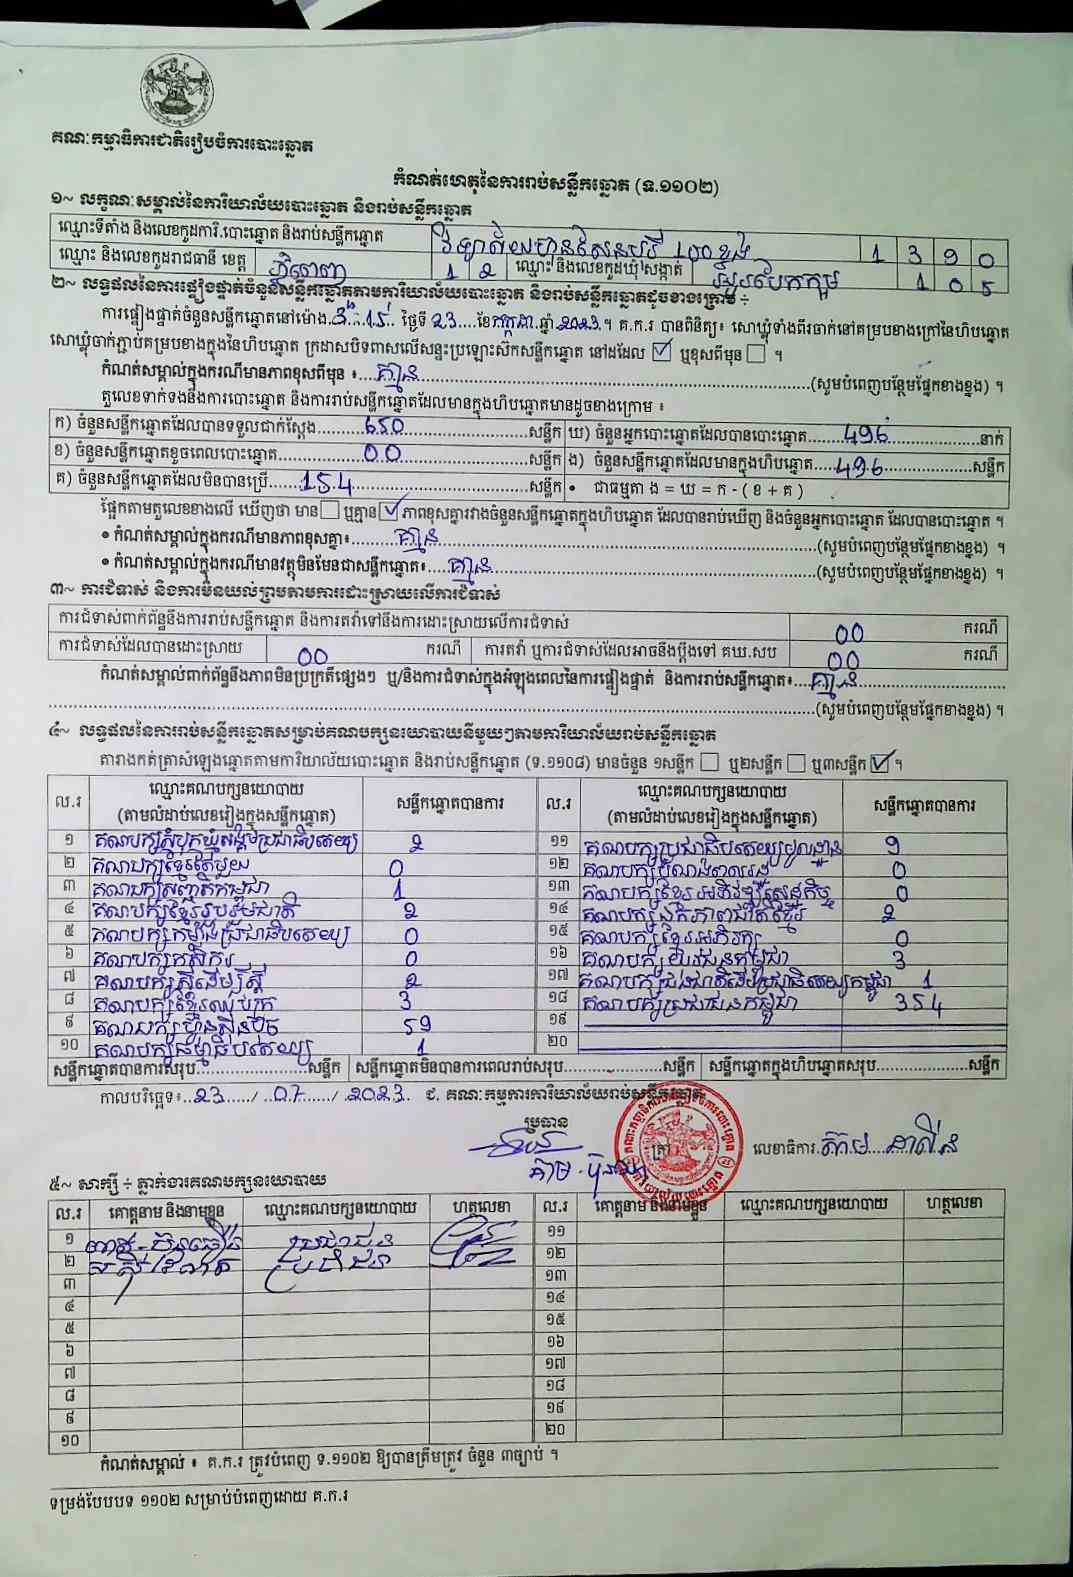 គណៈកម្មាធិការជាតិរៀបចំការបោះឆ្នោត
កំណត់ហេតុនៃការរាប់សន្លឹកឆ្នោត (ទ.១១០២)
១~ លក្ខណៈសម្គាល់នៃការិយាល័យបោះឆ្នោត និងរាប់សន្លឹកឆ្នោត
ឈ្មោះទីតាំង និងលេខកូដការិ.បោះឆ្នោត និងរាប់សន្លឹកឆ្នោត វិទ្យាល័យហ៊ុនសែន 100ខ្នង 1 3 9 0
ឈ្មោះ និងលេខកូដរាជធានី ខេត្ត ភ្នំពេញ 1 2 ឈ្មោះ និងលេខកូដឃុំ សង្កាត់ 1 0 5
២~ លទ្ធផលនៃការផ្ទៀងផ្ទាត់ចំនួនសន្លឹកឆ្នោតតាមការិយាល័យបោះឆ្នោត និងរាប់សន្លឹកឆ្នោតដូចខាងក្រោម ÷
ការផ្ទៀងផ្ទាត់ចំនួនសន្លឹកឆ្នោតនៅម៉ោង 3 15 ថ្ងៃទី 23 ខែ កក្កដា ឆ្នាំ 2023 ។ គ.ក.រ បានពិនិត្យ៖ សោឃ្លុំទាំងពីរចាក់នៅគម្របខាងក្រៅនៃហិបឆ្នោត
សោឃ្លុំចាក់ភ្ជាប់គម្របខាងក្នុងនៃហិបឆ្នោត ក្រដាសបិទពាសលើសន្ទះប្រឡោះស៊កសន្លឹកឆ្នោត នៅដដែល ☑ ឬខុសពីមុន ☐ ។
កំណត់សម្គាល់ក្នុងករណីមានភាពខុសពីមុន ៖ គ្មាន (សូមបំពេញបន្ថែមផ្នែកខាងខ្នង) ។
តួលេខទាក់ទងនឹងការបោះឆ្នោត និងការរាប់សន្លឹកឆ្នោតដែលមានក្នុងហិបឆ្នោតមានដូចខាងក្រោម ៖
ក) ចំនួនសន្លឹកឆ្នោតដែលបានទទួលជាក់ស្តែង 650 សន្លឹក ឃ) ចំនួនអ្នកបោះឆ្នោតដែលបានបោះឆ្នោត 496 នាក់
ខ) ចំនួនសន្លឹកឆ្នោតខូចពេលបោះឆ្នោត 00 សន្លឹក ង) ចំនួនសន្លឹកឆ្នោតដែលមានក្នុងហិបឆ្នោត 496 សន្លឹក
គ) ចំនួនសន្លឹកឆ្នោតដែលមិនបានប្រើ 154 សន្លឹក • ជាធម្មតា ង = ឃ = ក - ( ខ + គ )
ផ្អែកតាមតួលេខខាងលើ ឃើញថា មាន ☐ ឬគ្មាន ☑ ភាពខុសគ្នារវាងចំនួនសន្លឹកឆ្នោតក្នុងហិបឆ្នោត ដែលបានរាប់ឃើញ និងចំនួនអ្នកបោះឆ្នោត ដែលបានបោះឆ្នោត ។
• កំណត់សម្គាល់ក្នុងករណីមានភាពខុសគ្នា៖ គ្មាន (សូមបំពេញបន្ថែមផ្នែកខាងខ្នង) ។
• កំណត់សម្គាល់ក្នុងករណីមានវត្ថុមិនមែនជាសន្លឹកឆ្នោត៖ គ្មាន (សូមបំពេញបន្ថែមផ្នែកខាងខ្នង) ។
៣~ ការជំទាស់ និងការមិនយល់ព្រមតាមការដោះស្រាយលើការជំទាស់
ការជំទាស់ពាក់ព័ន្ធនឹងការរាប់សន្លឹកឆ្នោត និងការតវ៉ាទៅនឹងការដោះស្រាយលើការជំទាស់ 00 ករណី
ការជំទាស់ដែលបានដោះស្រាយ 00 ករណី ការតវ៉ា ឬការជំទាស់ដែលអាចនឹងប្តឹងទៅ គឃ.សប 00 ករណី
កំណត់សម្គាល់ពាក់ព័ន្ធនឹងភាពមិនប្រក្រតីផ្សេងៗ ឬ/និងការជំទាស់ក្នុងអំឡុងពេលនៃការផ្ទៀងផ្ទាត់ និងការរាប់សន្លឹកឆ្នោត៖ គ្មាន
(សូមបំពេញបន្ថែមផ្នែកខាងខ្នង) ។
៤~ លទ្ធផលនៃការរាប់សន្លឹកឆ្នោតសម្រាប់គណបក្សនយោបាយនីមួយៗតាមការិយាល័យរាប់សន្លឹកឆ្នោត
តារាងកត់ត្រាសំឡេងឆ្នោតតាមការិយាល័យបោះឆ្នោត និងរាប់សន្លឹកឆ្នោត (ទ.១១០៨) មានចំនួន ១សន្លឹក ☐ ឬ២សន្លឹក ☐ ឬ៣សន្លឹក ☑ ។
ល.រ ឈ្មោះគណបក្សនយោបាយ (តាមលំដាប់លេខរៀងក្នុងសន្លឹកឆ្នោត) សន្លឹកឆ្នោតបានការ ល.រ ឈ្មោះគណបក្សនយោបាយ (តាមលំដាប់លេខរៀងក្នុងសន្លឹកឆ្នោត) សន្លឹកឆ្នោតបានការ
១ គណបក្សសំបុកឃ្មុំសង្គមប្រជាធិបតេយ្យ 2 ១១ គណបក្សប្រជាធិបតេយ្យមូលដ្ឋាន 9
២ គណបក្សខ្មែរតែមួយ 0 ១២ គណបក្សបំណងពលរដ្ឋ 0
៣ គណបក្សសញ្ជាតិកម្ពុជា 1 ១៣ គណបក្សខ្មែរអភិវឌ្ឍន៍សេដ្ឋកិច្ច 0
៤ គណបក្សខ្មែររួបរួមជាតិ 2 ១៤ គណបក្សឯកភាពជាតិខ្មែរ 2
៥ គណបក្សកម្លាំងប្រជាធិបតេយ្យ 0 ១៥ គណបក្សខ្មែរអភិរក្ស 0
៦ គណបក្សកសិករ 0 ១៦ គណបក្សយុវជនកម្ពុជា 3
៧ គណបក្សស្ត្រីដើម្បីស្ត្រី 2 ១៧ គណបក្សជនជាតិដើមប្រជាធិបតេយ្យកម្ពុជា 1
៨ គណបក្សខ្មែរឈប់ក្រ 3 ១៨ គណបក្សប្រជាជនកម្ពុជា 354
៩ គណបក្សហ្វ៊ុនស៊ិនប៉ិច 59 ១៩
១០ គណបក្សធម្មាធិបតេយ្យ 1 ២០
សន្លឹកឆ្នោតបានការសរុប សន្លឹក សន្លឹកឆ្នោតមិនបានការពេលរាប់សរុប សន្លឹក សន្លឹកឆ្នោតក្នុងហិបឆ្នោតសរុប សន្លឹក
កាលបរិច្ឆេទ៖ 23 / 07 / 2023 ជ. គណៈកម្មការការិយាល័យរាប់សន្លឹកឆ្នោត
ប្រធាន ត្រា លេខាធិការ
៥~ សាក្សី ÷ ភ្នាក់ងារគណបក្សនយោបាយ
ល.រ គោត្តនាម និងនាមខ្លួន ឈ្មោះគណបក្សនយោបាយ ហត្ថលេខា ល.រ គោត្តនាម និងនាមខ្លួន ឈ្មោះគណបក្សនយោបាយ ហត្ថលេខា
១ ប្រជាជន ១១
២ ប្រជាជន ១២
៣ ១៣
៤ ១៤
៥ ១៥
៦ ១៦
៧ ១៧
៨ ១៨
៩ ១៩
១០ ២០
កំណត់សម្គាល់ ៖ គ.ក.រ ត្រូវបំពេញ ទ.១១០២ ឱ្យបានត្រឹមត្រូវ ចំនួន ៣ច្បាប់ ។
ទម្រង់បែបបទ ១១០២ សម្រាប់បំពេញដោយ គ.ក.រ